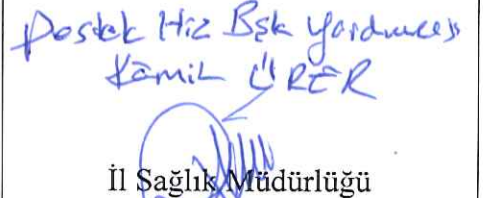 Destek Hiz Bşk Yardımcısı
Kamil ÜRER
İl Sağlık Müdürlüğü